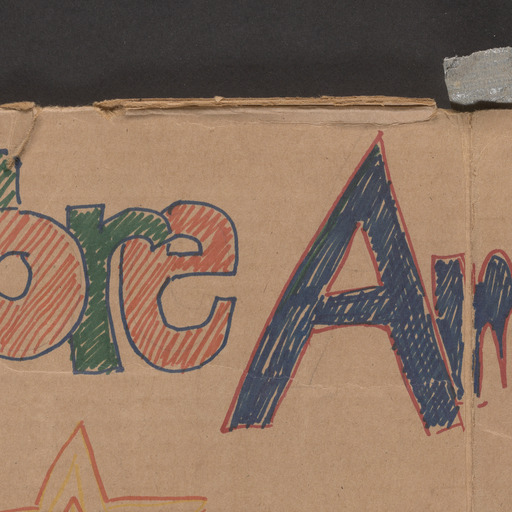 bre Am